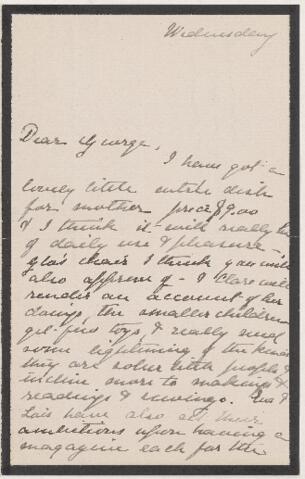 Wednesday
Dear George,
I have got a
lovely little entrée dish
for mother price $9.00
& I think it will really be
of daily use & pleasure -
glad I think you will
also approve of - & Clare will
render an account of her
doings, the smaller children
get few toys & really need
some lightening of the
they are sober little people &
incline more to makings &
readings & sewings. &
Lois have also set their
ambitions upon having a
magazine each for the